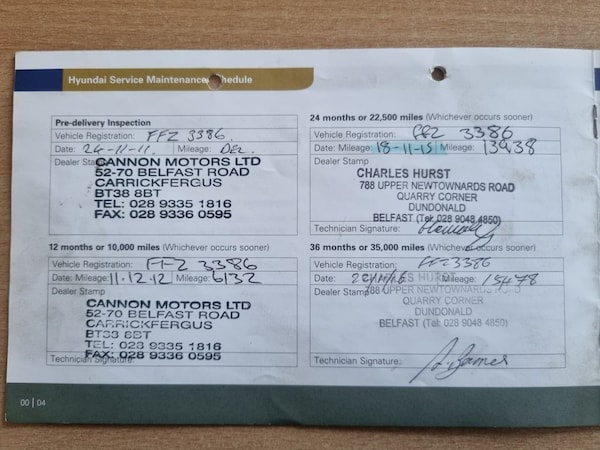 Hyundai Service Maintenance Schedule
Pre-delivery Inspection
Vehicle Registration: FFZ 3386.
Date: 24-11-11. Mileage: DEL.
Dealer Stamp
CANNON MOTORS LTD
52-70 BELFAST ROAD
CARRICKFERGUS
BT38 8BT
TEL: 028 9335 1816
FAX: 028 9336 0595
12 months or 10,000 miles (Whichever occurs sooner)
Vehicle Registration: FFZ 3386
Date: Mileage: 11.12.12 Mileage: 6132
Dealer Stamp
CANNON MOTORS LTD
52-70 BELFAST ROAD
CARRICKFERGUS
BT38 8BT
TEL: 028 9335 1816
FAX: 028 9336 0595
Technician Signature:
24 months or 22,500 miles (Whichever occurs sooner)
Vehicle Registration: FFZ 3386
Date: Mileage: 18-11-15 Mileage: 13938
Dealer Stamp
CHARLES HURST
788 UPPER NEWTOWNARDS ROAD
QUARRY CORNER
DUNDONALD
BELFAST (Tel: 028 9048 4850)
Technician Signature:
36 months or 35,000 miles (Whichever occurs sooner)
Vehicle Registration: FFZ 3386
Date: Mileage: Mileage: 15478
Dealer Stamp
CHARLES HURST
788 UPPER NEWTOWNARDS ROAD
QUARRY CORNER
DUNDONALD
BELFAST (Tel: 028 9048 4850)
Technician Signature:
00 | 04